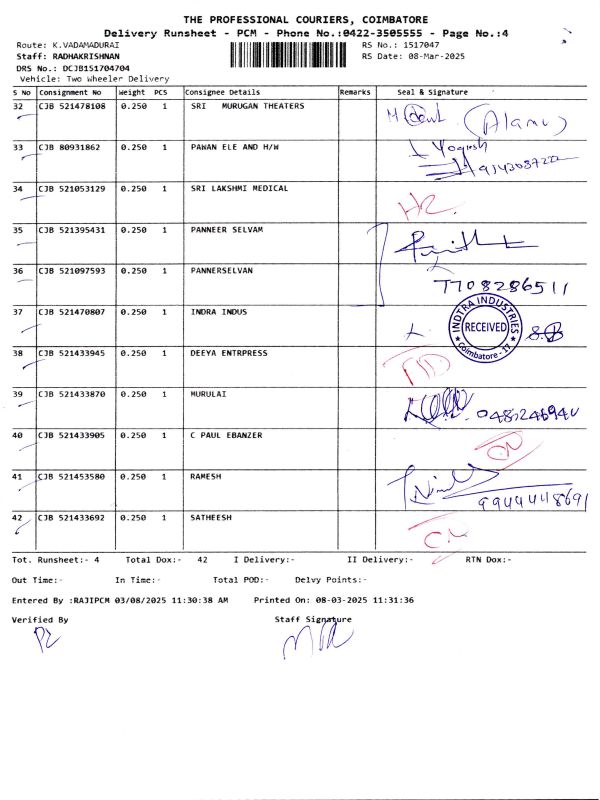 THE PROFESSIONAL COURIERS, COIMBATORE
Delivery Runsheet - PCM - Phone No.:0422-3505555 - Page No.:4
Route: K.VADAMADURAI RS No.: 1517047
Staff: RADHAKRISHNAN RS Date: 08-Mar-2025
DRS No.: DCJB151704704
Vehicle: Two Wheeler Delivery
S No Consignment No Weight PCS Consignee Details Remarks Seal & Signature
32 CJB 521478108 0.250 1 SRI MURUGAN THEATERS
33 CJB 80931862 0.250 1 PAWAN ELE AND H/W Yogesh
34 CJB 521053129 0.250 1 SRI LAKSHMI MEDICAL
35 CJB 521395431 0.250 1 PANNEER SELVAM
36 CJB 521097593 0.250 1 PANNERSELVAN 7708286511
37 CJB 521470807 0.250 1 INDRA INDUS INDTRA INDUSTRIES RECEIVED Coimbatore - 17
38 CJB 521433945 0.250 1 DEEYA ENTRPRESS
39 CJB 521433870 0.250 1 MURULAI
40 CJB 521433905 0.250 1 C PAUL EBANZER
41 CJB 521453580 0.250 1 RAMESH 9944448691
42 CJB 521433692 0.250 1 SATHEESH
Tot. Runsheet:- 4 Total Dox:- 42 I Delivery:- II Delivery:- RTN Dox:-
Out Time:- In Time:- Total POD:- Delvy Points:-
Entered By :RAJIPCM 03/08/2025 11:30:38 AM Printed On: 08-03-2025 11:31:36
Verified By Staff Signature